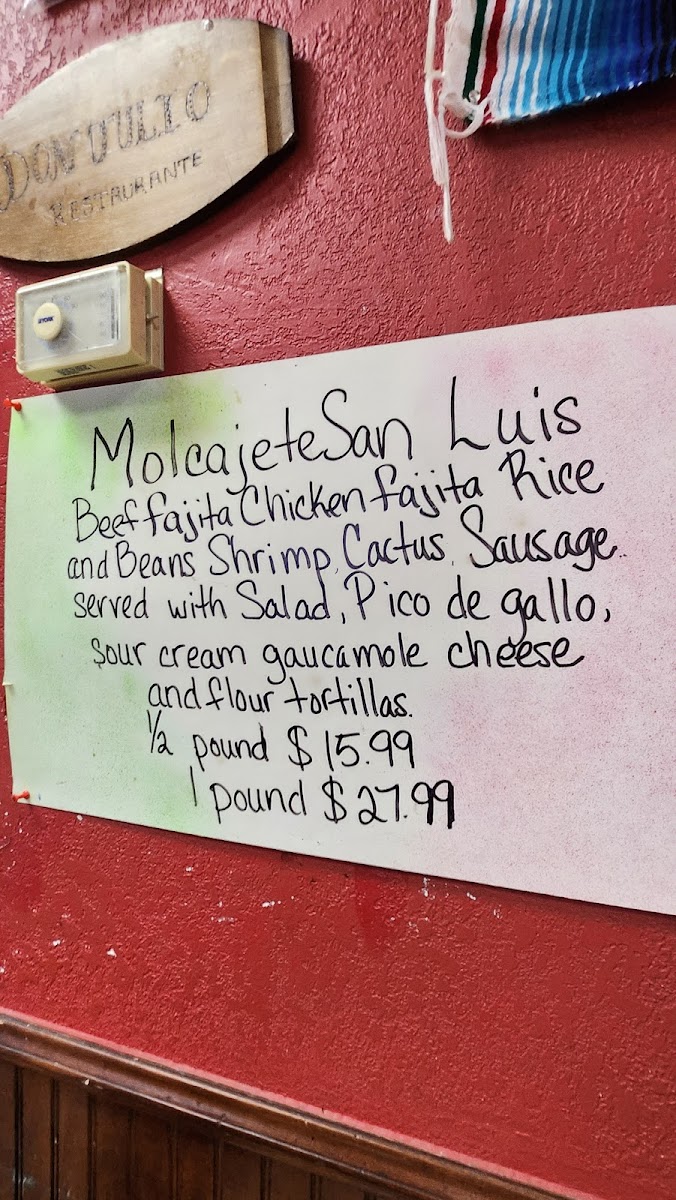 DON JULIO
RESTAURANTE
YORK
Molcajete San Luis
Beef fajita Chicken fajita Rice
and Beans Shrimp, Cactus, Sausage.
served with Salad, Pico de gallo,
sour cream gaucamole cheese
and flour tortillas.
1/2 pound $15.99
1 pound $27.99